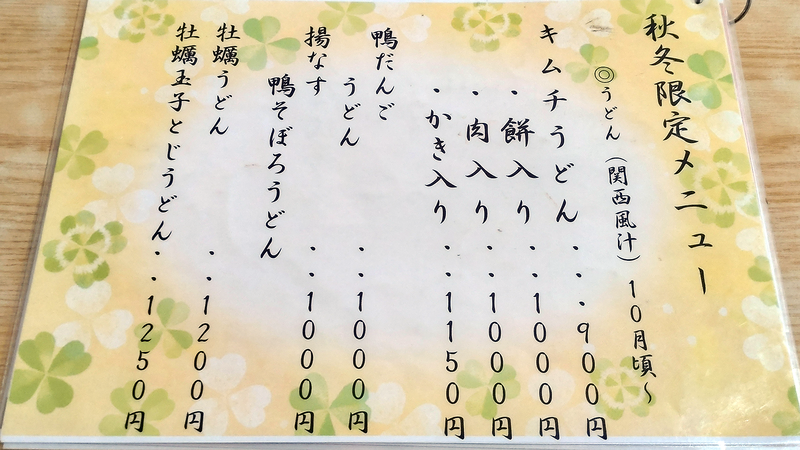 秋冬限定メニュー
◎うどん(関西風汁) 10月頃~
キムチうどん・・・900円
・餅入り・・1000円
・肉入り・・1000円
・かき入り・・1150円
鴨だんご
うどん・・1000円
揚なす
鴨そぼろうどん・・1000円
牡蠣うどん・・1200円
牡蠣玉子とじうどん・・1250円